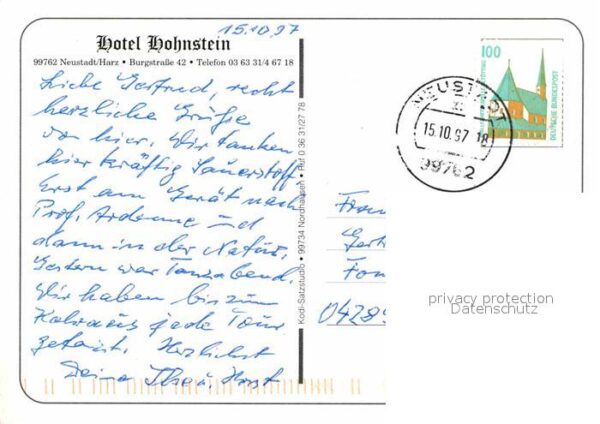 15.10.97
Hotel Hohnstein
99762 Neustadt/Harz • Burgstraße 42 • Telefon 03 63 31/4 67 18
Liebe Gertrud, recht
herzliche Grüße
von hier. Wir tanken
hier kräftig Sauerstoff.
Erst am Gerät nach
Prof. Ardenne und
dann in der Natur.
Gestern war Tanzabend.
Wir haben bis zum
Kehraus jede Tour
getanzt. Herzlichst
Deine Ilse u. Horst
Kodi-Satzstudio • 99734 Nordhausen • Ruf 0 36 31/27 78
100
DEUTSCHE BUNDESPOST
NEUSTADT
15.10.97-18
99762
Frau
Gert
0428
privacy protection
Datenschutz